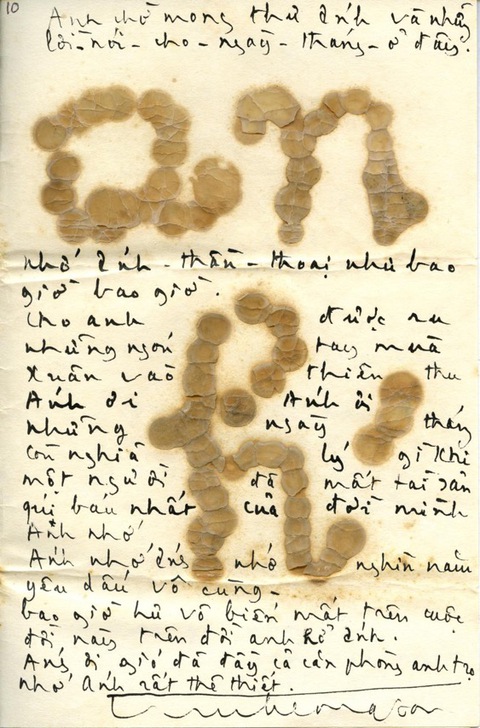 10
Anh chờ mong thư Ánh và những
lời-nói-cho-ngày-tháng-ở đây.
a.n
nhớ Ánh-thần-thoại như bao
giờ bao giờ.
h
Cho anh được ru
những ngón tay mùa
Xuân vào thiên thu
Ánh ơi Ánh ơi
những ngày tháng
còn nghĩa lý gì khi
một người đã mất tài sản
quí báu nhất của đời mình
Ánh nhớ
Ánh nhớ Ánh nhớ nghìn năm
yêu dấu vô cùng-
bao giờ hư vô biến mất trên cuộc
đời này trên đời anh hở Ánh.
Ánh ơi gió đã đầy cả căn phòng anh trọ
nhớ Ánh rất thê thiết.